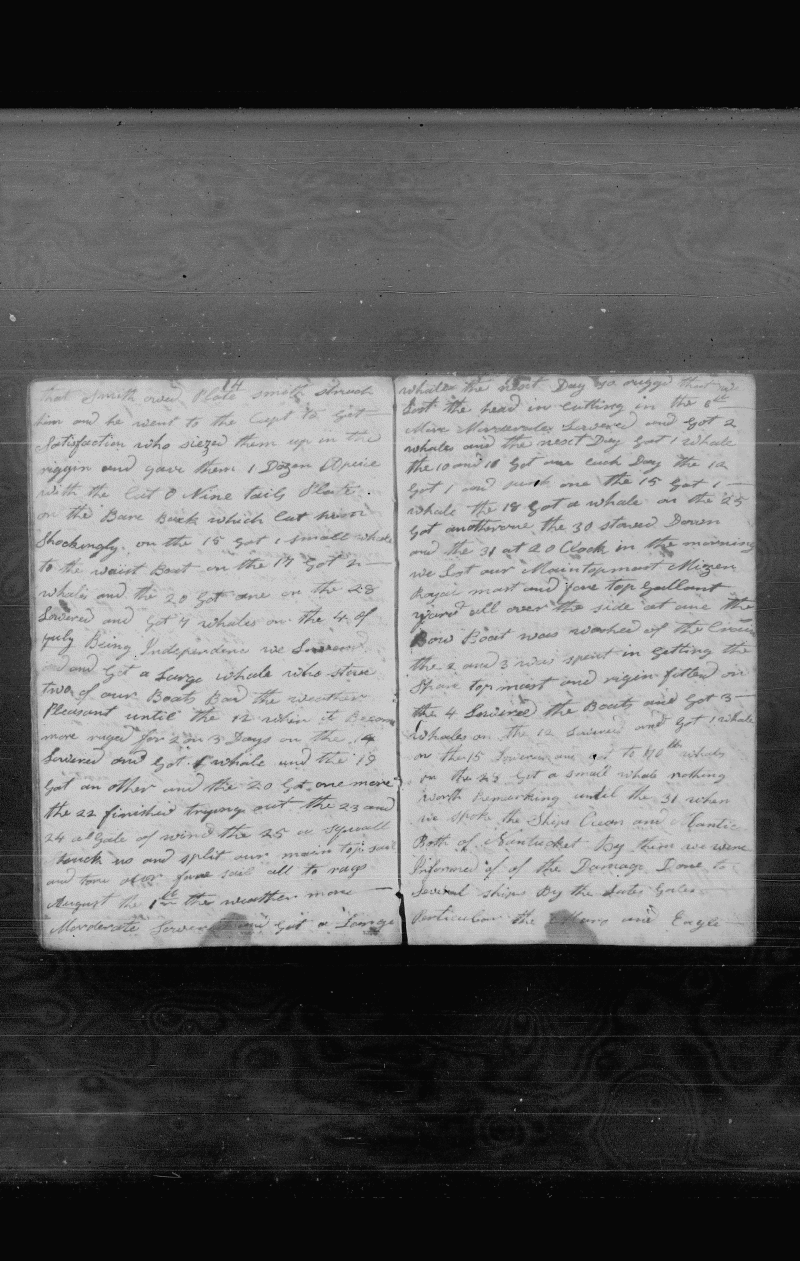 14
that Smith owed Plato smith struck
him and he went to the Capt to Get
Satisfaction who siezed them up in the
riggin and gave them 1 Dozen Apeice
with the Cat O Nine tails Plato
on the Bare Back which Cut him
Shockingly. on the 15 Got 1 small whale
to the waist Boat on the 17 Got 2
whales and the 20 Got one on the 28
Lowered and Got 4 whales on the 4 of
July Being Independence we Lowered
and Got a Large whale who stove
two of our Boats Bad the weather
Pleasant until the 12 when it Became
more ruged for 2 or 3 Days on the 14
Lowered and Got 1 whale and the 19
Got an other and the 20 Got one more
the 22 finished trying out the 23 and
24 a Gale of wind the 25 a Squall
struck us and split our main top sail
and tore our fore sail all to rags
August the 1st the weather more
Morderate Lowered and Got a Large
whale the next Day so rugged that we
Lost the head in Cutting in the 6th
More Morderate Lowered and Got 2
whales and the next Day Got 1 whale
the 10 and 16 Got one Each Day the 12
Got 1 and sunk one the 15 Got 1
whale the 18 Got a whale on the 25
Got another one the 30 stowed Down
and the 31 at 2 O Clock in the morning
we Lost our Maintopmast Mizen
Royal mast and fore top Gallant
yard all over the side at one the
Bow Boat was washed of the Cranes
the 2 and 3 was spent in Getting the
Spare top mast and rigin fitted on
the 4 Lowered the Boats and Got 3
whales on the 12 Lowered and Got 1 whale
on the 15 Lowered and to whale
on the 28 Got a small whale nothing
worth Remarking until the 31 when
we spoke the Ships Ocean and Atlantic
Both of Nantucket By them we were
Informed of of the Damage Done to
Several ships By the Lates Gales
Perticular the and Eagle